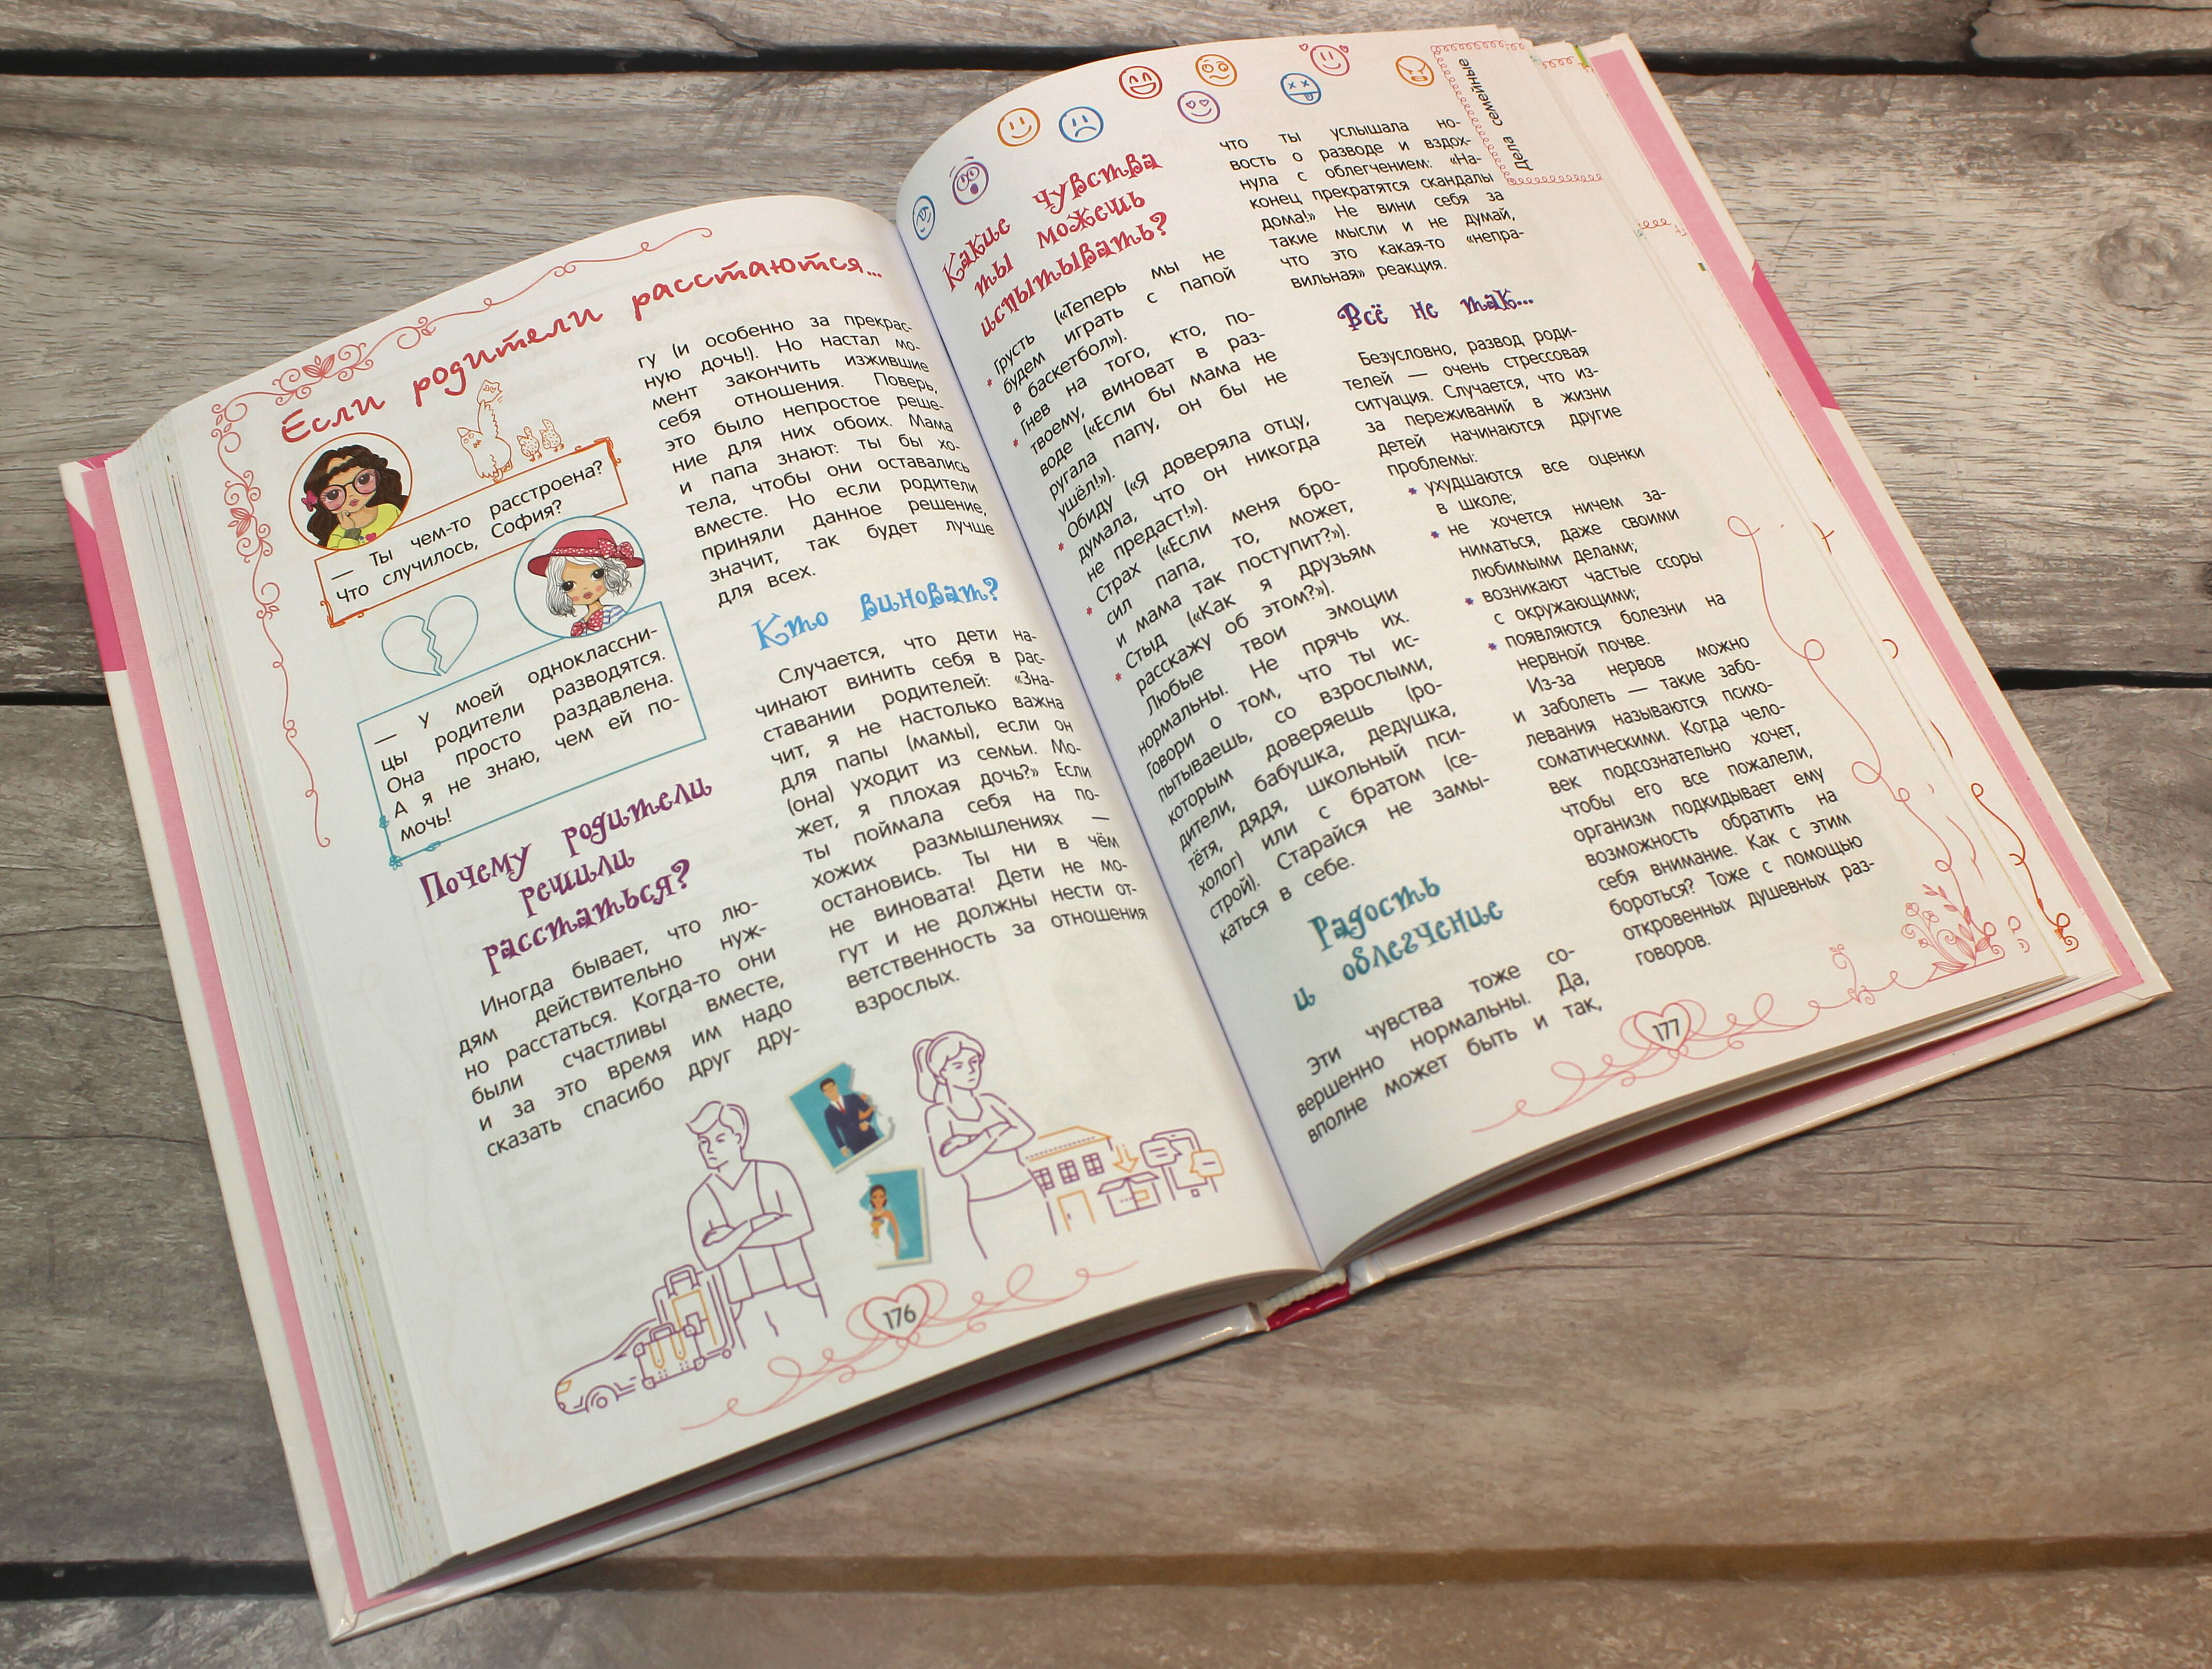 Если родители расстаются...
— Ты чем-то расстроена?
Что случилось, София?
— У моей одноклассни-
цы родители разводятся.
Она просто раздавлена.
А я не знаю, чем ей по-
мочь!
Почему родители
решили
расстаться?
Иногда бывает, что лю-
дям действительно нуж-
но расстаться. Когда-то они
были счастливы вместе,
и за это время им надо
сказать спасибо друг дру-
гу (и особенно за прекрас-
ную дочь!). Но настал мо-
мент закончить изжившие
себя отношения. Поверь,
это было непростое реше-
ние для них обоих. Мама
и папа знают: ты бы хо-
тела, чтобы они оставались
вместе. Но если родители
приняли данное решение,
значит, так будет лучше
для всех.
Кто виноват?
Случается, что дети на-
чинают винить себя в рас-
ставании родителей: «Зна-
чит, я не настолько важна
для папы (мамы), если он
(она) уходит из семьи. Мо-
жет, я плохая дочь?» Если
ты поймала себя на по-
хожих размышлениях —
остановись. Ты ни в чём
не виновата! Дети не мо-
гут и не должны нести от-
ветственность за отношения
взрослых.
176
Дела семейные
Какие чувства
ты можешь
испытывать?
* Грусть («Теперь мы не
будем играть с папой
в баскетбол»).
* Гнев на того, кто, по-
твоему, виноват в раз-
воде («Если бы мама не
ругала папу, он бы не
ушёл!»).
* Обиду («Я доверяла отцу,
думала, что он никогда
не предаст!»).
* Страх («Если меня бро-
сил папа, то, может,
и мама так поступит?»).
* Стыд («Как я друзьям
расскажу об этом?»).
Любые твои эмоции
нормальны. Не прячь их.
Говори о том, что ты ис-
пытываешь, со взрослыми,
которым доверяешь (ро-
дители, бабушка, дедушка,
тётя, дядя, школьный пси-
холог) или с братом (се-
строй). Старайся не замы-
каться в себе.
Радость
и облегчение
Эти чувства тоже со-
вершенно нормальны. Да,
вполне может быть и так,
что ты услышала но-
вость о разводе и вздох-
нула с облегчением: «На-
конец прекратятся скандалы
дома!» Не вини себя за
такие мысли и не думай,
что это какая-то «непра-
вильная» реакция.
Всё не так...
Безусловно, развод роди-
телей — очень стрессовая
ситуация. Случается, что из-
за переживаний в жизни
детей начинаются другие
проблемы:
* ухудшаются все оценки
в школе;
* не хочется ничем за-
ниматься, даже своими
любимыми делами;
* возникают частые ссоры
с окружающими;
* появляются болезни на
нервной почве.
Из-за нервов можно
и заболеть — такие забо-
левания называются психо-
соматическими. Когда чело-
век подсознательно хочет,
чтобы его все пожалели,
организм подкидывает ему
возможность обратить на
себя внимание. Как с этим
бороться? Тоже с помощью
откровенных душевных раз-
говоров.
177